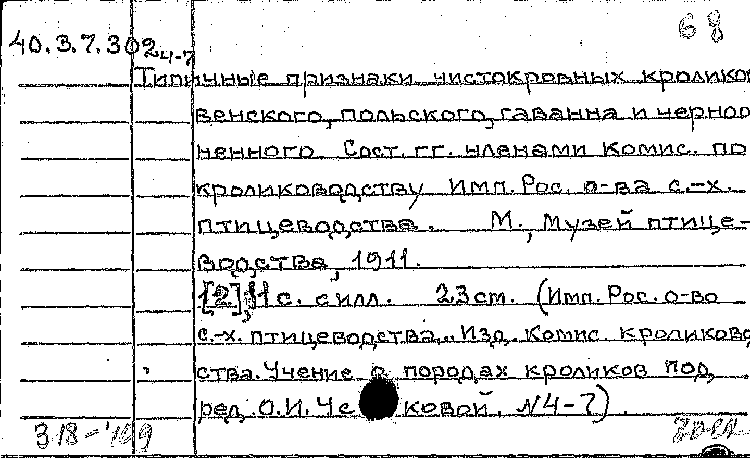 68
40.3.7.302 4-7
Типичные признаки чистокровных кроликов
венского, польского, гаванна и черноо
ненного. Сост. гг. членами Комис. по
кролиководству Имп. Рос. о-ва с.-х.
птицеводства. М., Музей птице-
водства, 1911.
[2], 11 с. с илл. 23 см. (Имп. Рос. о-во
с.-х. птицеводства. Изд. Комис. кроликовод
ства. Учение о породах кроликов под
ред. О.И. Че ковой. №4-7).
318-